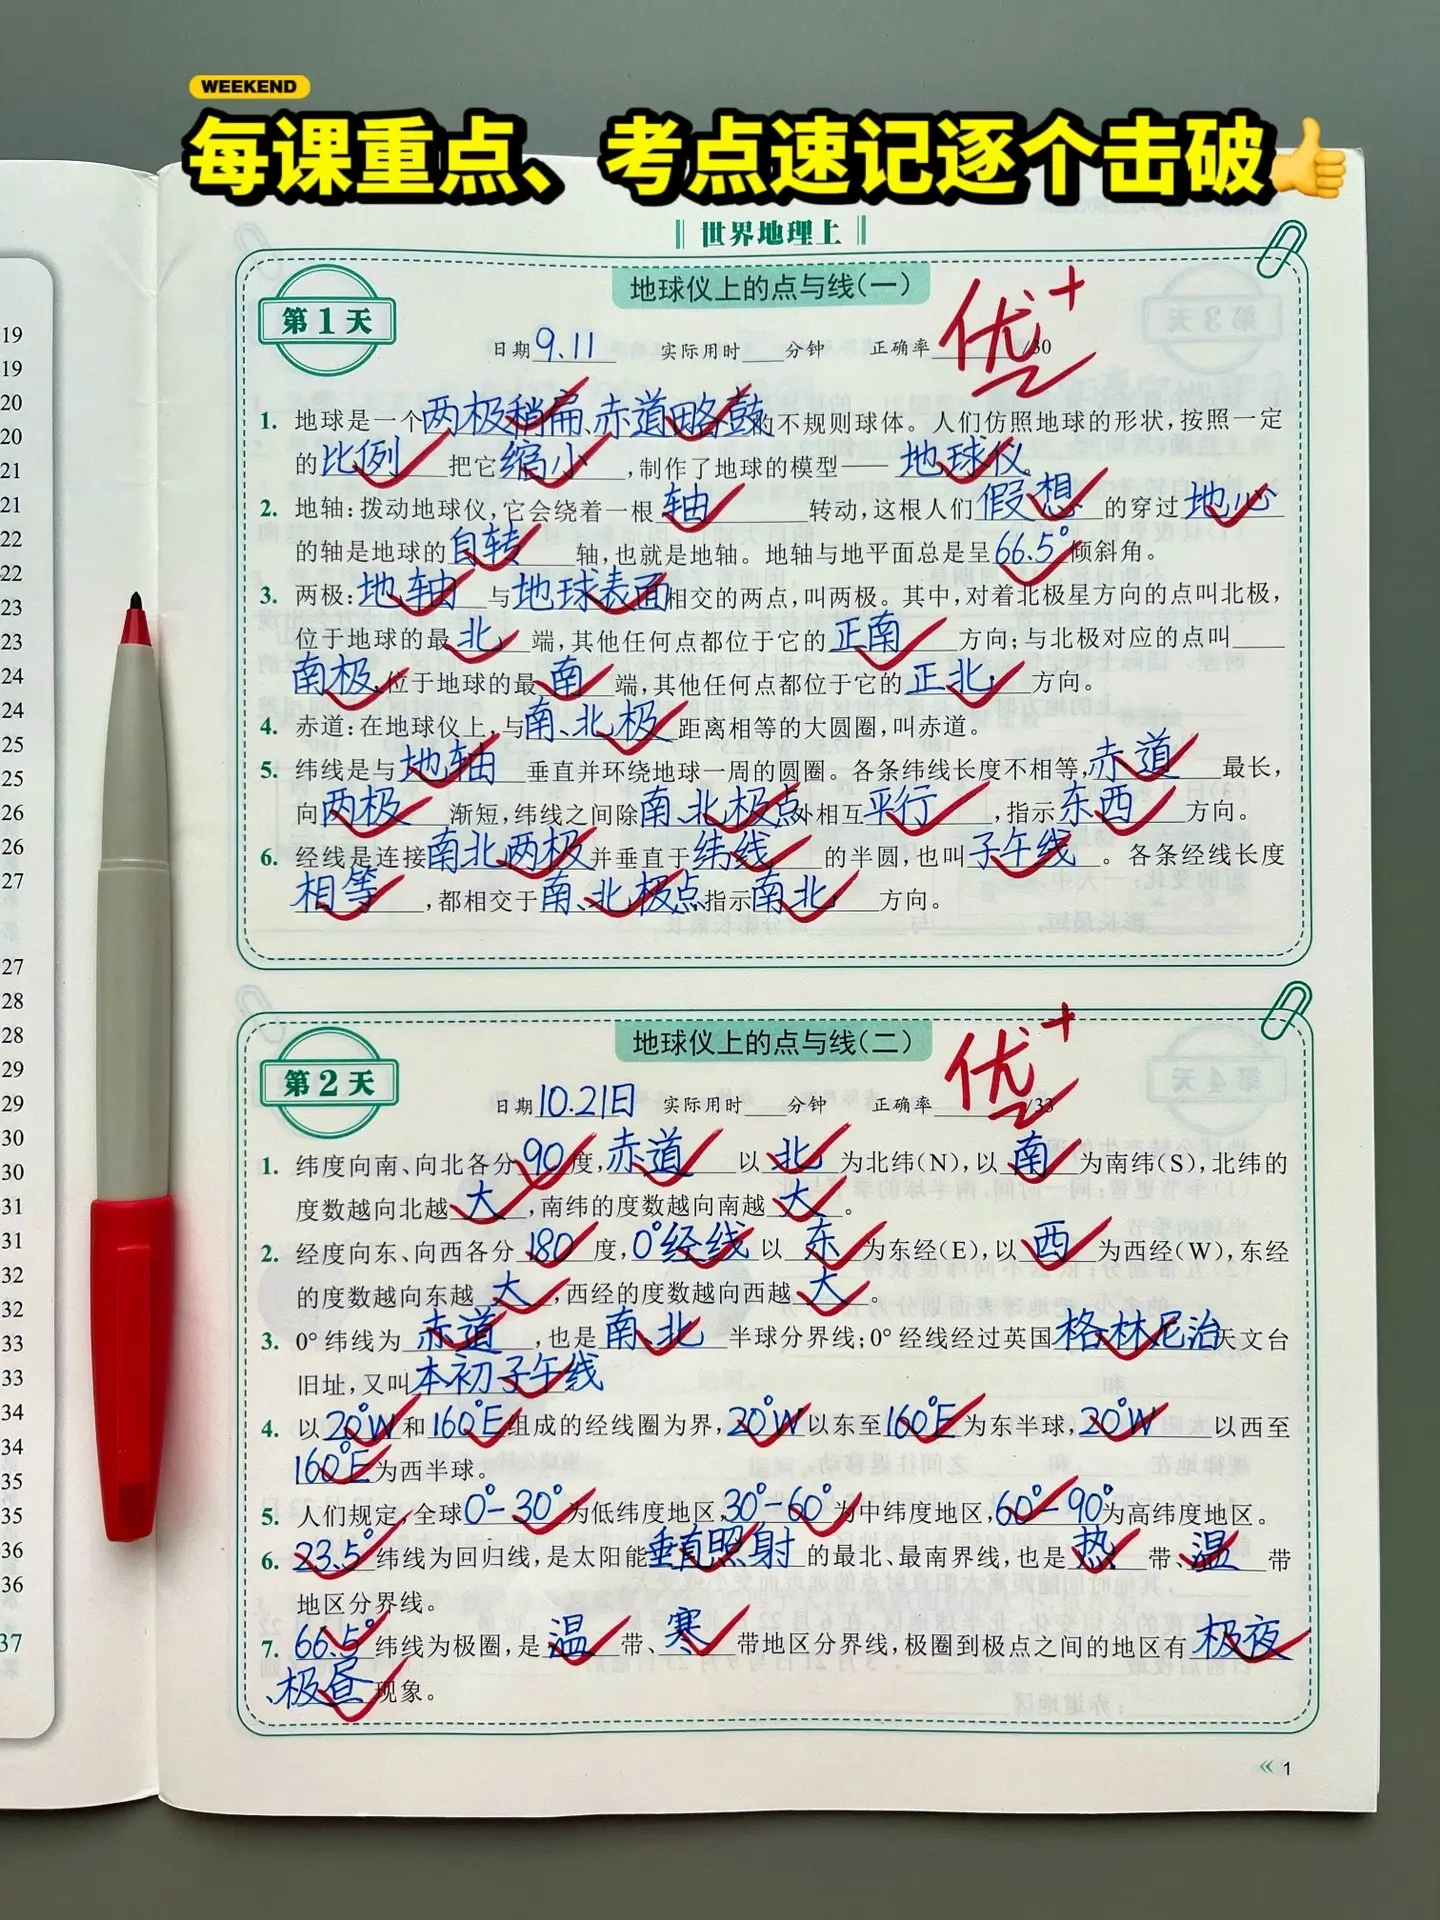 WEEKEND
每课重点、考点速记逐个击破
世界地理上
第1天
地球仪上的点与线(一)
优+
日期 9.11 实际用时____分钟 正确率____/30
1. 地球是一个两极稍扁、赤道略鼓的不规则球体。人们仿照地球的形状,按照一定
的比例把它缩小,制作了地球的模型——地球仪。
2. 地轴:拨动地球仪,它会绕着一根轴转动,这根人们假想的穿过地心
的轴是地球的自转轴,也就是地轴。地轴与地平面总是呈66.5°倾斜角。
3. 两极:地轴与地球表面相交的两点,叫两极。其中,对着北极星方向的点叫北极,
位于地球的最北端,其他任何点都位于它的正南方向;与北极对应的点叫
南极,位于地球的最南端,其他任何点都位于它的正北方向。
4. 赤道:在地球仪上,与南、北极距离相等的大圆圈,叫赤道。
5. 纬线是与地轴垂直并环绕地球一周的圆圈。各条纬线长度不相等,赤道最长,
向两极渐短,纬线之间除南、北极点外相互平行,指示东西方向。
6. 经线是连接南北两极并垂直于纬线的半圆,也叫子午线。各条经线长度
相等,都相交于南、北极点指示南北方向。
第2天
地球仪上的点与线(二)
优+
日期 10.21日 实际用时____分钟 正确率____/33
1. 纬度向南、向北各分90度,赤道以北为北纬(N),以南为南纬(S),北纬的
度数越向北越大,南纬的度数越向南越大。
2. 经度向东、向西各分180度,0°经线以东为东经(E),以西为西经(W),东经
的度数越向东越大,西经的度数越向西越大。
3. 0°纬线为赤道,也是南、北半球分界线;0°经线经过英国格林尼治天文台
旧址,又叫本初子午线
4. 以20°W和160°E组成的经线圈为界,20°W以东至160°E为东半球,20°W以西至
160°E为西半球。
5. 人们规定,全球0°-30°为低纬度地区,30°-60°为中纬度地区,60°-90°为高纬度地区。
6. 23.5°纬线为回归线,是太阳能垂直照射的最北、最南界线,也是热带、温带
地区分界线。
7. 66.5°纬线为极圈,是温带、寒带地区分界线,极圈到极点之间的地区有极夜
、极昼现象。
« 1
19
19
20
20
21
21
22
22
23
23
24
24
25
25
26
26
27
27
28
28
29
29
30
30
31
31
32
32
33
33
34
34
35
35
36
36
37